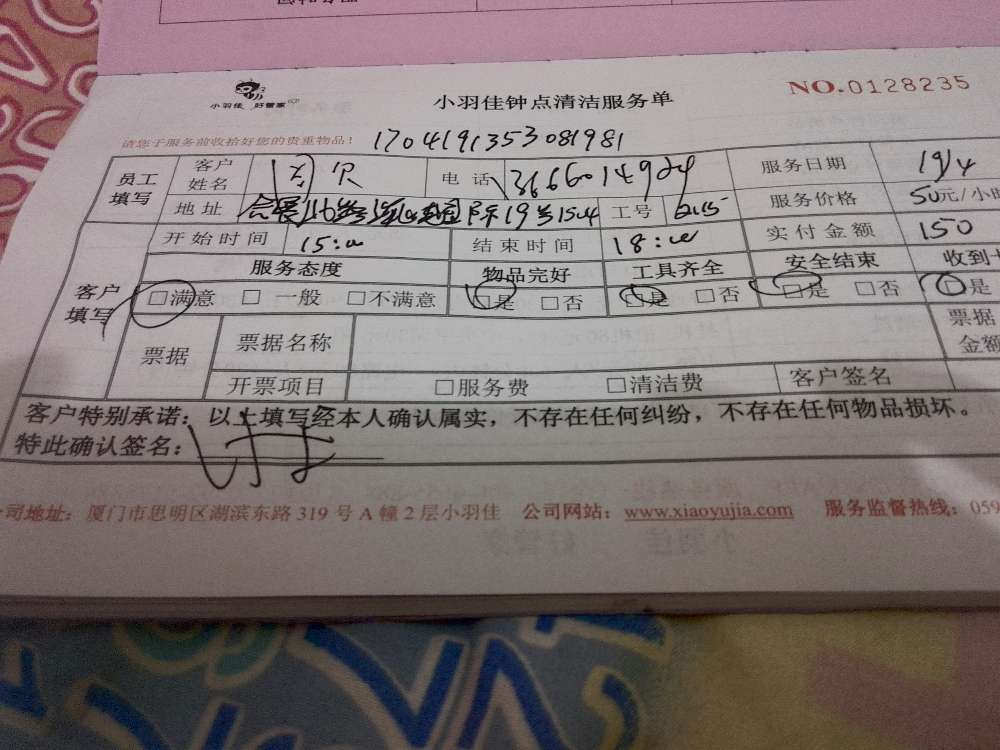 小羽佳 好管家
小羽佳钟点清洁服务单
NO.0128235
请您于服务前收拾好您的贵重物品!
1704191353081981
员工填写 客户姓名 电话 13666014924 服务日期 19/4
地址 19 1504 工号 服务价格 50元/小
开始时间 15:00 结束时间 18:00 实付金额 150
客户填写 服务态度 物品完好 工具齐全 安全结束 收到
□满意 □一般 □不满意 □是 □否 □是 □否 □是 □否 □是
票据 票据名称 票据金额
开票项目 □服务费 □清洁费 客户签名
客户特别承诺:以上填写经本人确认属实,不存在任何纠纷,不存在任何物品损坏。
特此确认签名:
司地址:厦门市思明区湖滨东路 319 号 A 幢 2 层小羽佳 公司网站:www.xiaoyujia.com 服务监督热线:059